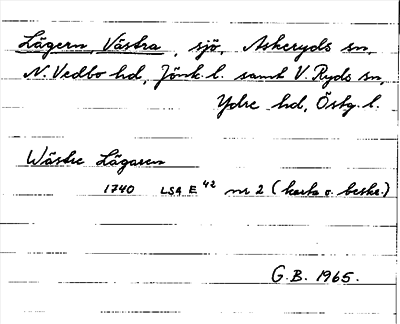 Lägern, Västra, sjö, Askeryds sn,
N. Vedbo hd, Jönk. l. samt V. Ryds sn,
Ydre hd, Östg. l.
Wästre Lägaren
1740 LSA E 42 nr 2 (karta o. beskr.)
G.B. 1965.